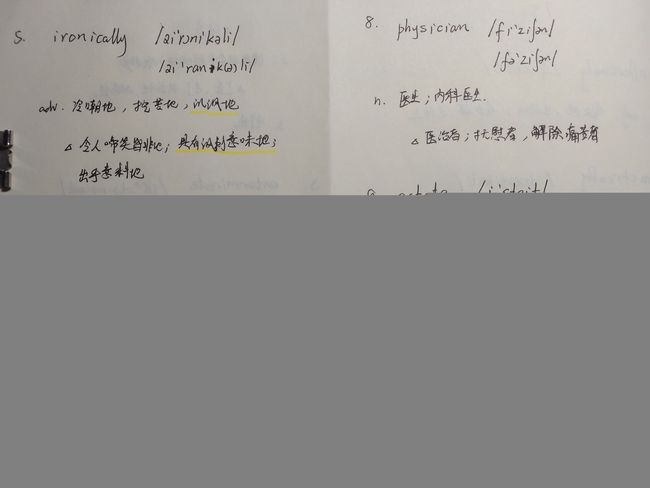 5. ironically /aiˈrɔnikəli/
/aiˈranik(ə)li/
adv. 冷嘲地，挖苦地，讽刺地
△ 令人啼笑皆非地；具有讽刺意味地；
出乎意料地
8. physician /fiˈziʃən/
/fəˈziʃən/
n. 医生；内科医生.
△ 医治者；抚慰者，解除痛苦者